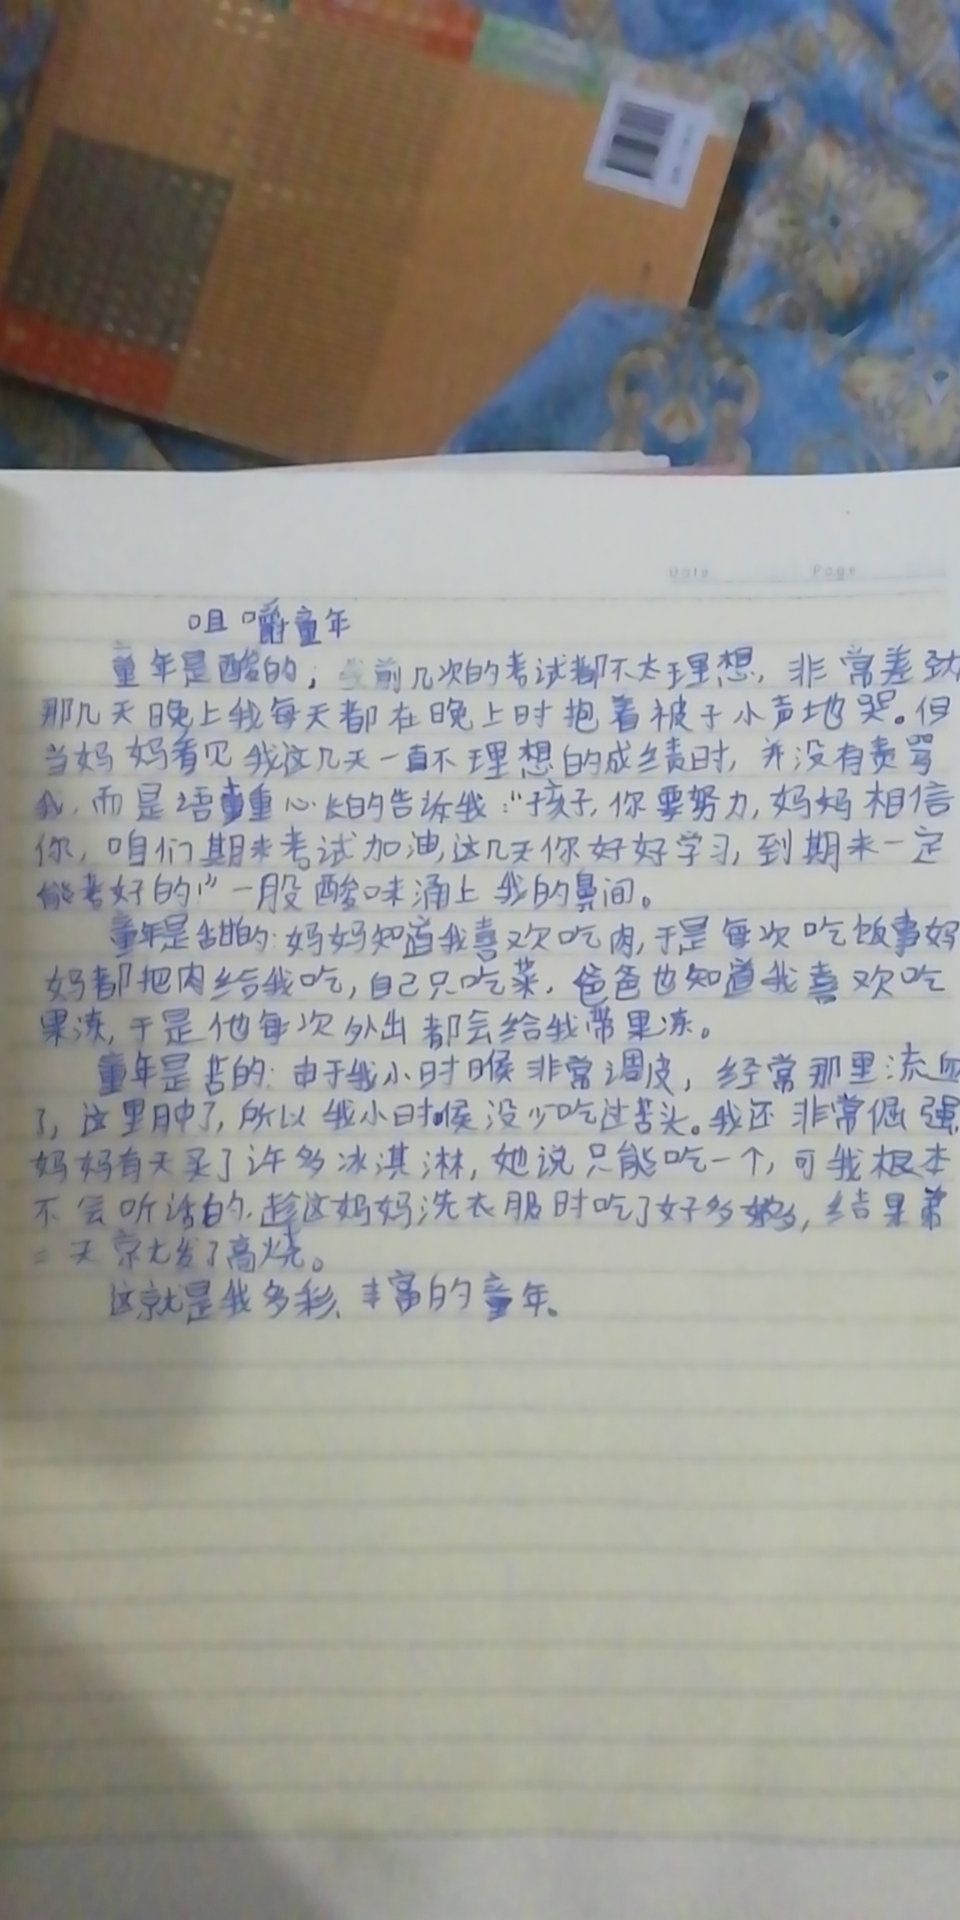 Date Page
咀嚼童年
童年是酸的；我前几次的考试都不太理想，非常差劲
那几天晚上我每天都在晚上时抱着被子小声地哭。但
当妈妈看见我这几天一直不理想的成绩时，并没有责骂
我，而是语重心长的告诉我：“孩子，你要努力，妈妈相信
你，咱们期末考试加油，这几天你好好学习，到期末一定
能考好的！”一股酸味涌上我的鼻间。
童年是甜的：妈妈知道我喜欢吃肉，于是每次吃饭事妈
妈都把肉给我吃，自己只吃菜，爸爸也知道我喜欢吃
果冻，于是他每次外出都会给我带果冻。
童年是苦的：由于我小时候非常调皮，经常那里流血
了，这里肿了，所以我小时候没少吃过苦头。我还非常倔强
妈妈有天买了许多冰淇淋，她说只能吃一个，可我根本
不会听话的，趁这妈妈洗衣服时吃了好多，结果第
二天就发了高烧。
这就是我多彩、丰富的童年。